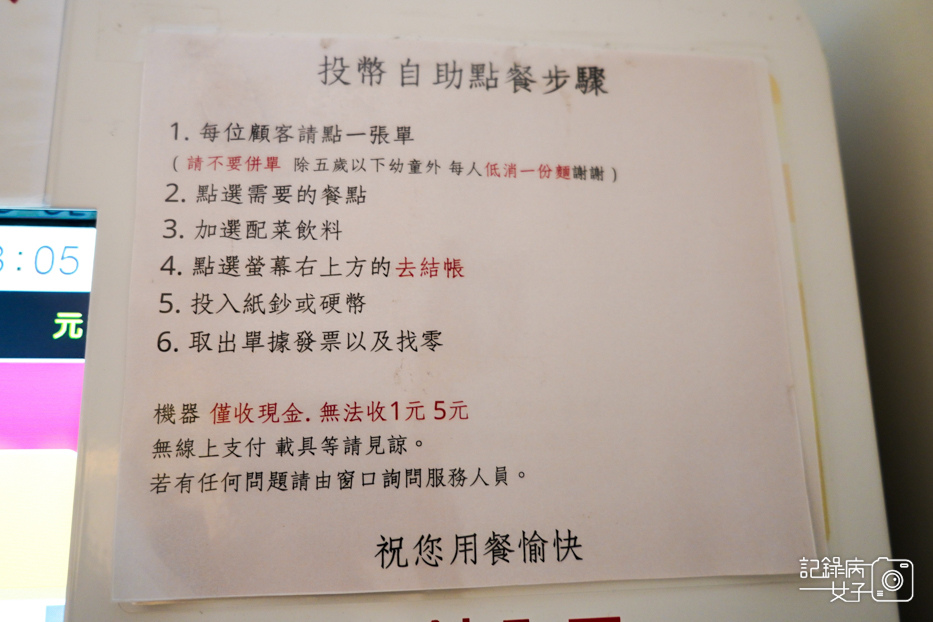 投幣自助點餐步驟
1. 每位顧客請點一張單
( 請不要併單 除五歲以下幼童外 每人低消一份麵謝謝 )
2. 點選需要的餐點
3. 加選配菜飲料
4. 點選螢幕右上方的去結帳
5. 投入紙鈔或硬幣
6. 取出單據發票以及找零
機器 僅收現金. 無法收1元 5元
無線上支付 載具等請見諒。
若有任何問題請由窗口詢問服務人員。
祝您用餐愉快
:05
元
記錄病
女子